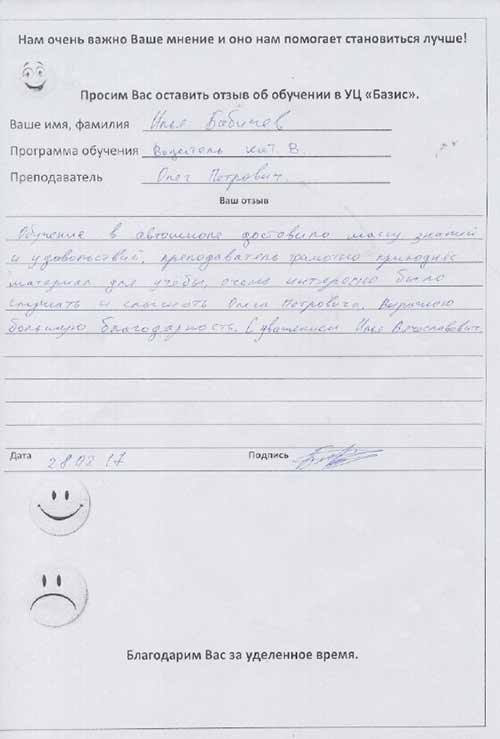 Нам очень важно Ваше мнение и оно нам помогает становиться лучше!
Просим Вас оставить отзыв об обучении в УЦ «Базис».
Ваше имя, фамилия Илья Бабичев
Программа обучения Водитель кат. В.
Преподаватель Олег Петрович.
Ваш отзыв
Обучение в автошколе доставило массу знаний
и удовольствий, преподаватель грамотно приподнёс
материал для учебы, очень интересно было
слушать и Олега Петровича. Выражаю
большую благодарность. С уважением Илья Вячеславович.
Дата 28.02.17 Подпись
Благодарим Вас за уделенное время.